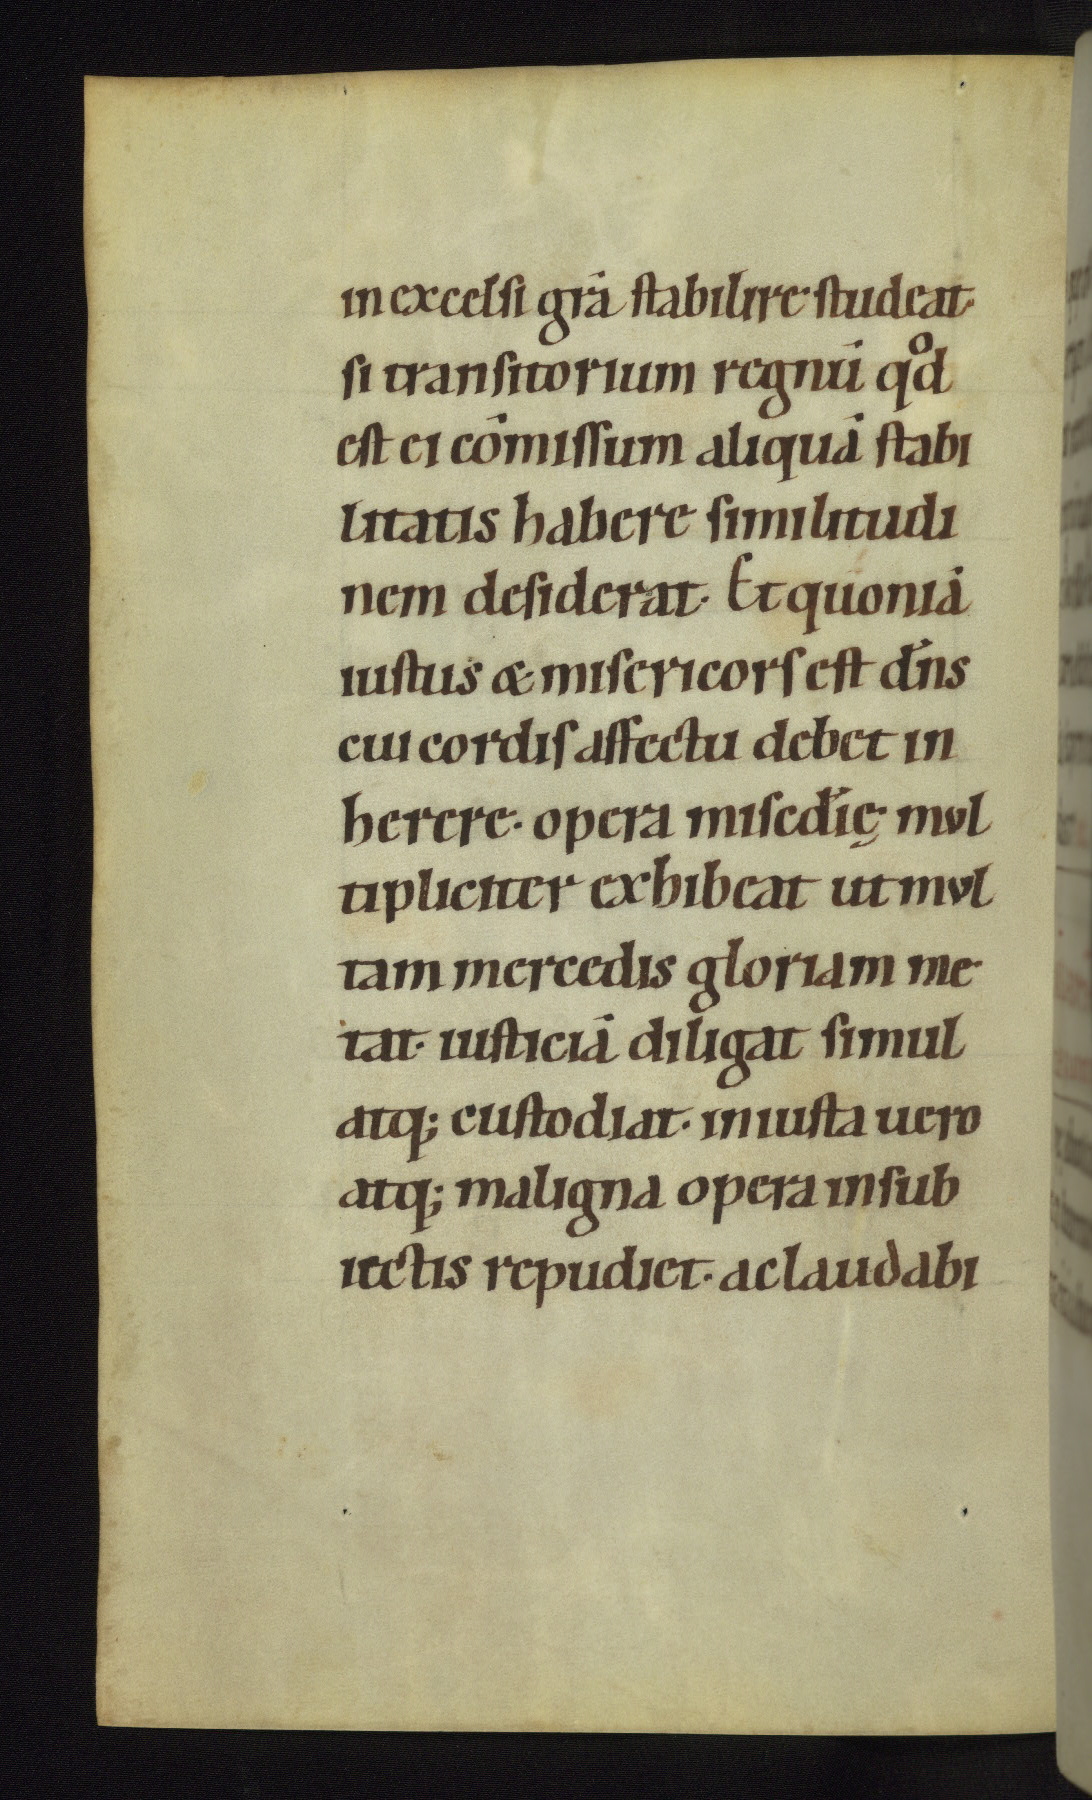 in excelsi grā stabilire studeat·
si transitorium regnū qͦd
est ei cōmissum aliquā stabi
litatis habere similitudi
nem desiderat· Et quoniā
iustus & misericors est dn̄s
cui cordis affectu debet in
herere· opera misedīę mul
tipliciter exhibeat ut mul
tam mercedis gloriam me
tat· iusticiā diligat simul
atq; custodiat· iniusta uero
atq; maligna opera in sub
iectis repudiet· ac laudabi